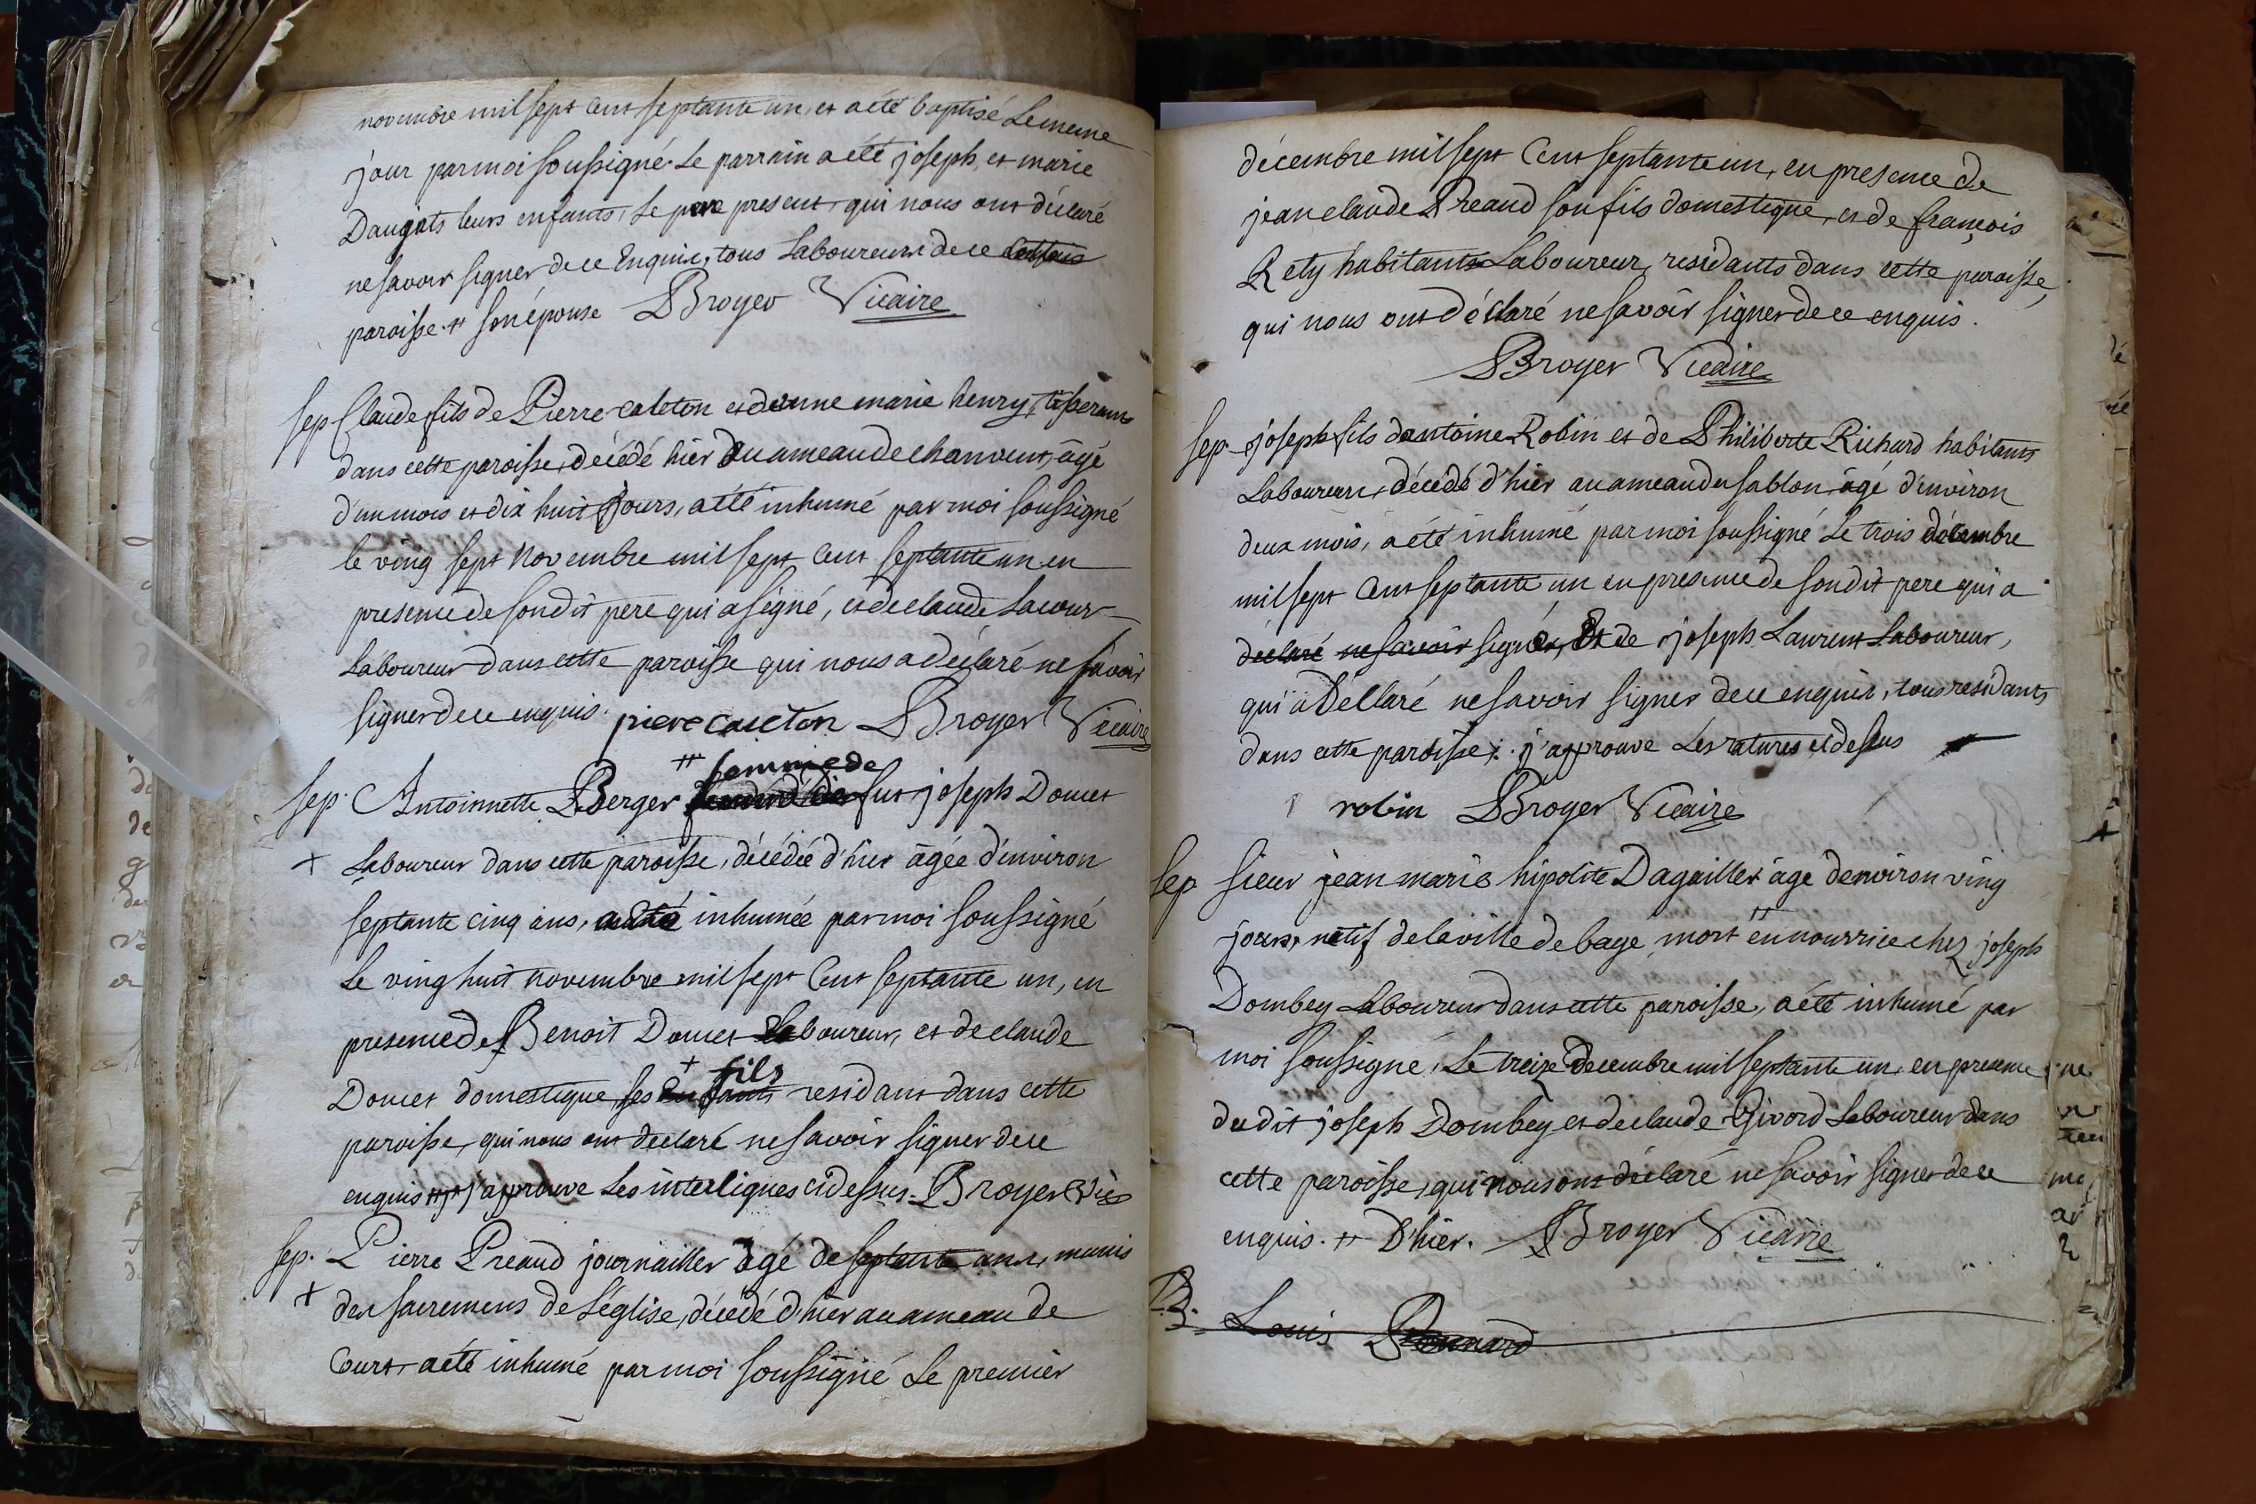 novembre mil sept cent septante un, et a été baptisé le meme
jour par moi soussigné. Le parrain a été joseph, et marie
Daugats leurs enfants, le pere present, qui nous ont déclaré
ne savoir signer de ce Enquis, tous Laboureurs de ce
paroisse. # son épouse Broyer Vicaire
sep Claude fils de Pierre caleton et de anne marie henry, tisserans
dans cette paroisse, décédé hier Du ameau de chanvent, âgé
d'un mois et dix huit jours, a été inhumé par moi soussigné
le ving sept Novembre mil sept cent septante un en
presence de son dit pere qui a signé, et de claude Lacour
Laboureur dans cette paroisse qui nous a déclaré ne savoir
signer de ce enquis. piere caleton Broyer Vicaire
# femme de
sep. Antoinette Berger fut joseph Doucet
+ Laboureur dans cette paroisse, décédée d'hier âgée d'environ
septante cinq ans, a été inhumée par moi soussigné
Le ving huit novembre mil sept cent septante un, en
presence de Benoit Doucet Laboureur, et de claude
+ fils
Doucet domestique, ses enfants residant dans cette
paroisse, qui nous ont declaré ne savoir signer de ce
enquis # + j'approuve Les interlignes ci dessus. Broyer Vic
sep. Pierre Preaud journailler âgé de septante ans, munis
+ des sacremens de L'église, décédé d'hier au ameau de
Court, a été inhumé par moi soussigné Le premier
décembre mil sept cent septante un, en presence de
jean claude Preaud son fils domestique, et de françois
Rety habitants Laboureur, residants dans cette paroisse,
qui nous ont déclaré ne savoir signer de ce enquis.
Broyer Vicaire
sep. joseph fils d'antoine Robin et de Philiberte Richard habitants
Laboureurs, décédé d'hier au ameau du sablon, âgé d'environ
deux mois, a été inhumé par moi soussigné Le trois décembre
mil sept cent septante un en présence de son dit pere qui a
déclaré ne savoir signé, Et de joseph Laurent Laboureur,
qui a Déclaré ne savoir signer de ce enquis, tous residants
dans cette paroisse. j'approuve Les ratures ci dessus
robin Broyer Vicaire
sep sieur jean marie hipolite Dagailler âge denviron ving
#
jours, natif de la ville de bage, mort en nourrice chez joseph
Dombey Laboureur dans cette paroisse, a été inhumé par
moi soussigné, Le treize Decembre mil septante un, en presence
du dit joseph Dombey et de claude Givord Laboureur dans
cette paroisse, qui nous ont déclaré ne savoir signer de ce
enquis. # D'hier. Broyer Vicaire
B. Louis Ponnard